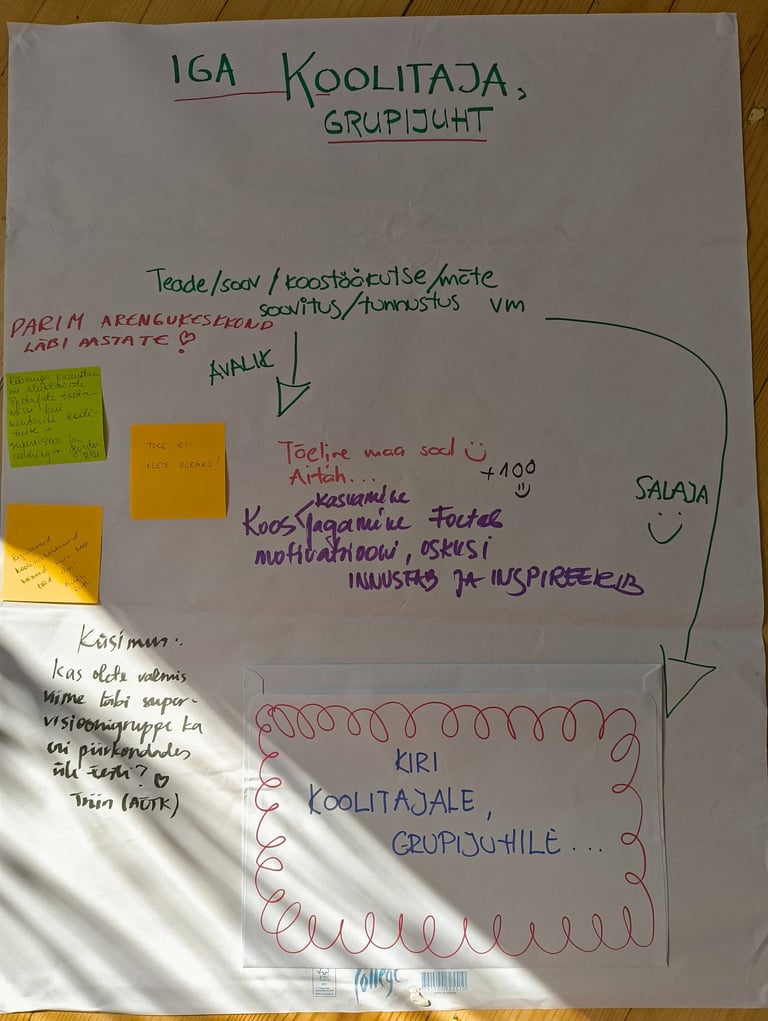 IGA KOOLITAJA,
GRUPIJUHT
Teade/soov/koostöökutse/mõte
soovitus/tunnustus vm
PARIM ARENGUKESKKOND
LÄBI AASTATE!
AVALIK
SALAJA
TORE, ET
OLETE OLEMAS!
Tõeline maa sool
Aitäh...
+100
kasvamine
Koos jagamine Toetab
motivatsiooni, oskusi
INNUSTAB JA INSPIREERIB
Küsimus:
Kas olete valmis
viima läbi super-
visioonigruppe ka
eri piirkondades
üle Eesti?
Triin (AÜTK)
KIRI
KOOLITAJALE,
GRUPIJUHILE...
college